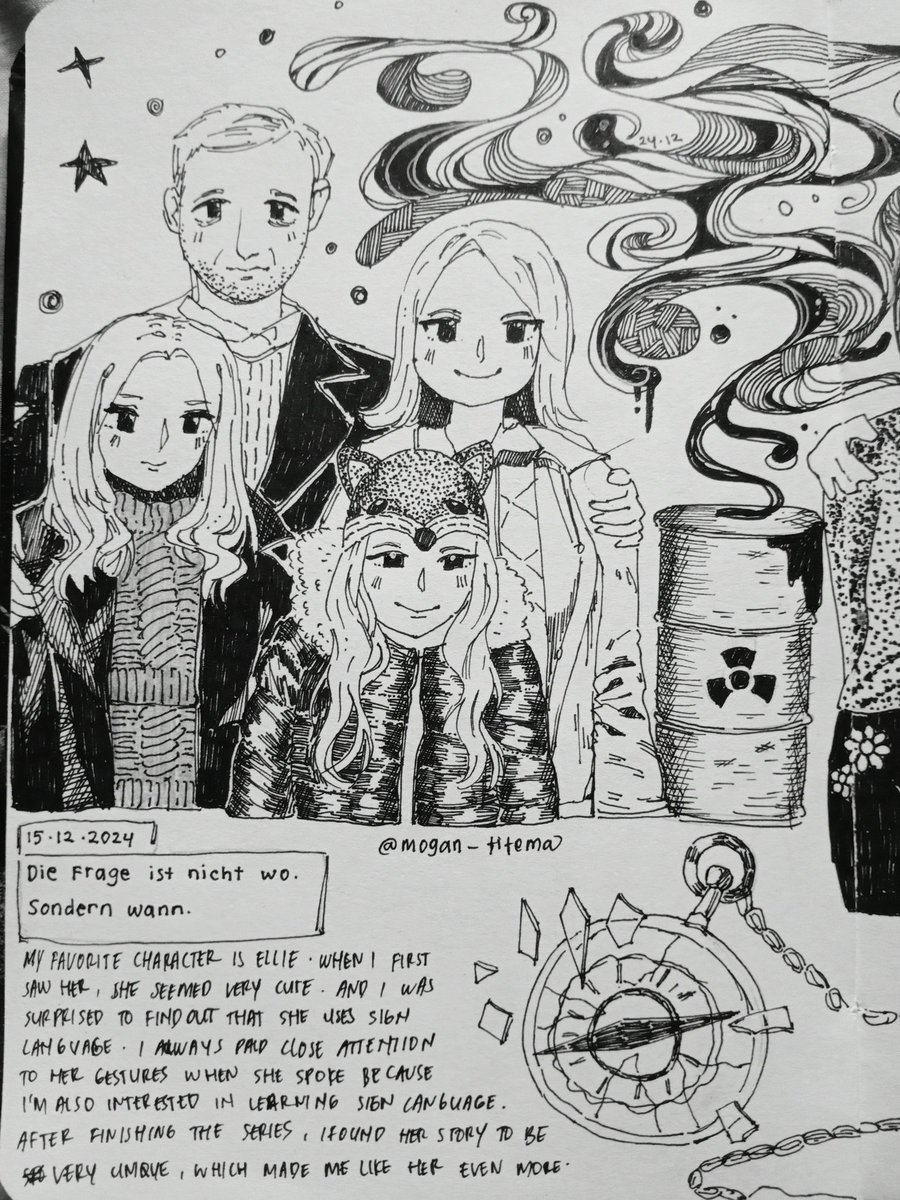 24.12
@mogan_titema
15.12.2024
Die Frage ist nicht wo.
Sondern wann.
MY FAVORITE CHARACTER IS ELLIE. WHEN I FIRST
SAW HER, SHE SEEMED VERY CUTE. AND I WAS
SURPRISED TO FIND OUT THAT SHE USES SIGN
LANGUAGE. I ALWAYS PAID CLOSE ATTENTION
TO HER GESTURES WHEN SHE SPOKE BECAUSE
I'M ALSO INTERESTED IN LEARNING SIGN LANGUAGE.
AFTER FINISHING THE SERIES, I FOUND HER STORY TO BE
VERY UNIQUE, WHICH MADE ME LIKE HER EVEN MORE.